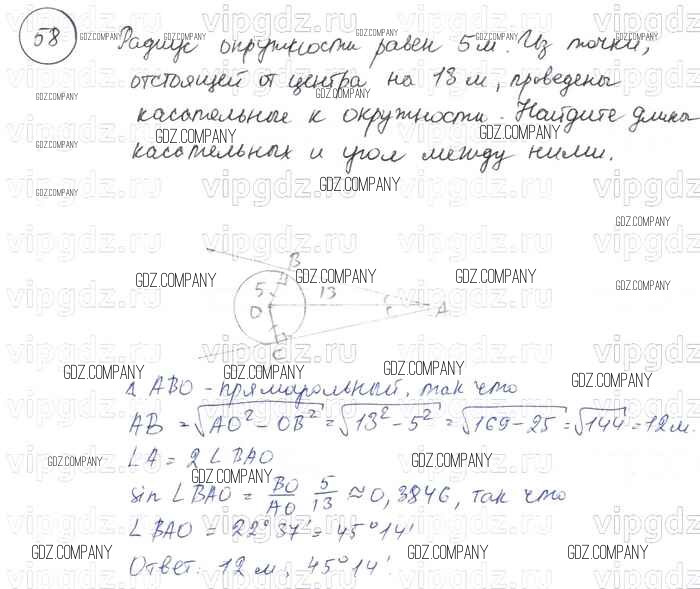 58 Радиус окружности равен 5 м. Из точки,
отстоящей от центра на 13 м, проведены
касательные к окружности. Найдите длина
касательных и угол между ними.
B
5 13
O A
C
Δ ABO - прямоугольный, так что
AB = √AO² - OB² = √13² - 5² = √169 - 25 = √144 = 12 м.
∠A = 2 ∠BAO
sin ∠BAO = BO/AO 5/13 ≈ 0,3846, так что
∠BAO = 22°37' = 45°14'
Ответ: 12 м, 45°14'.
GDZ.COMPANY
vipgdz.ru